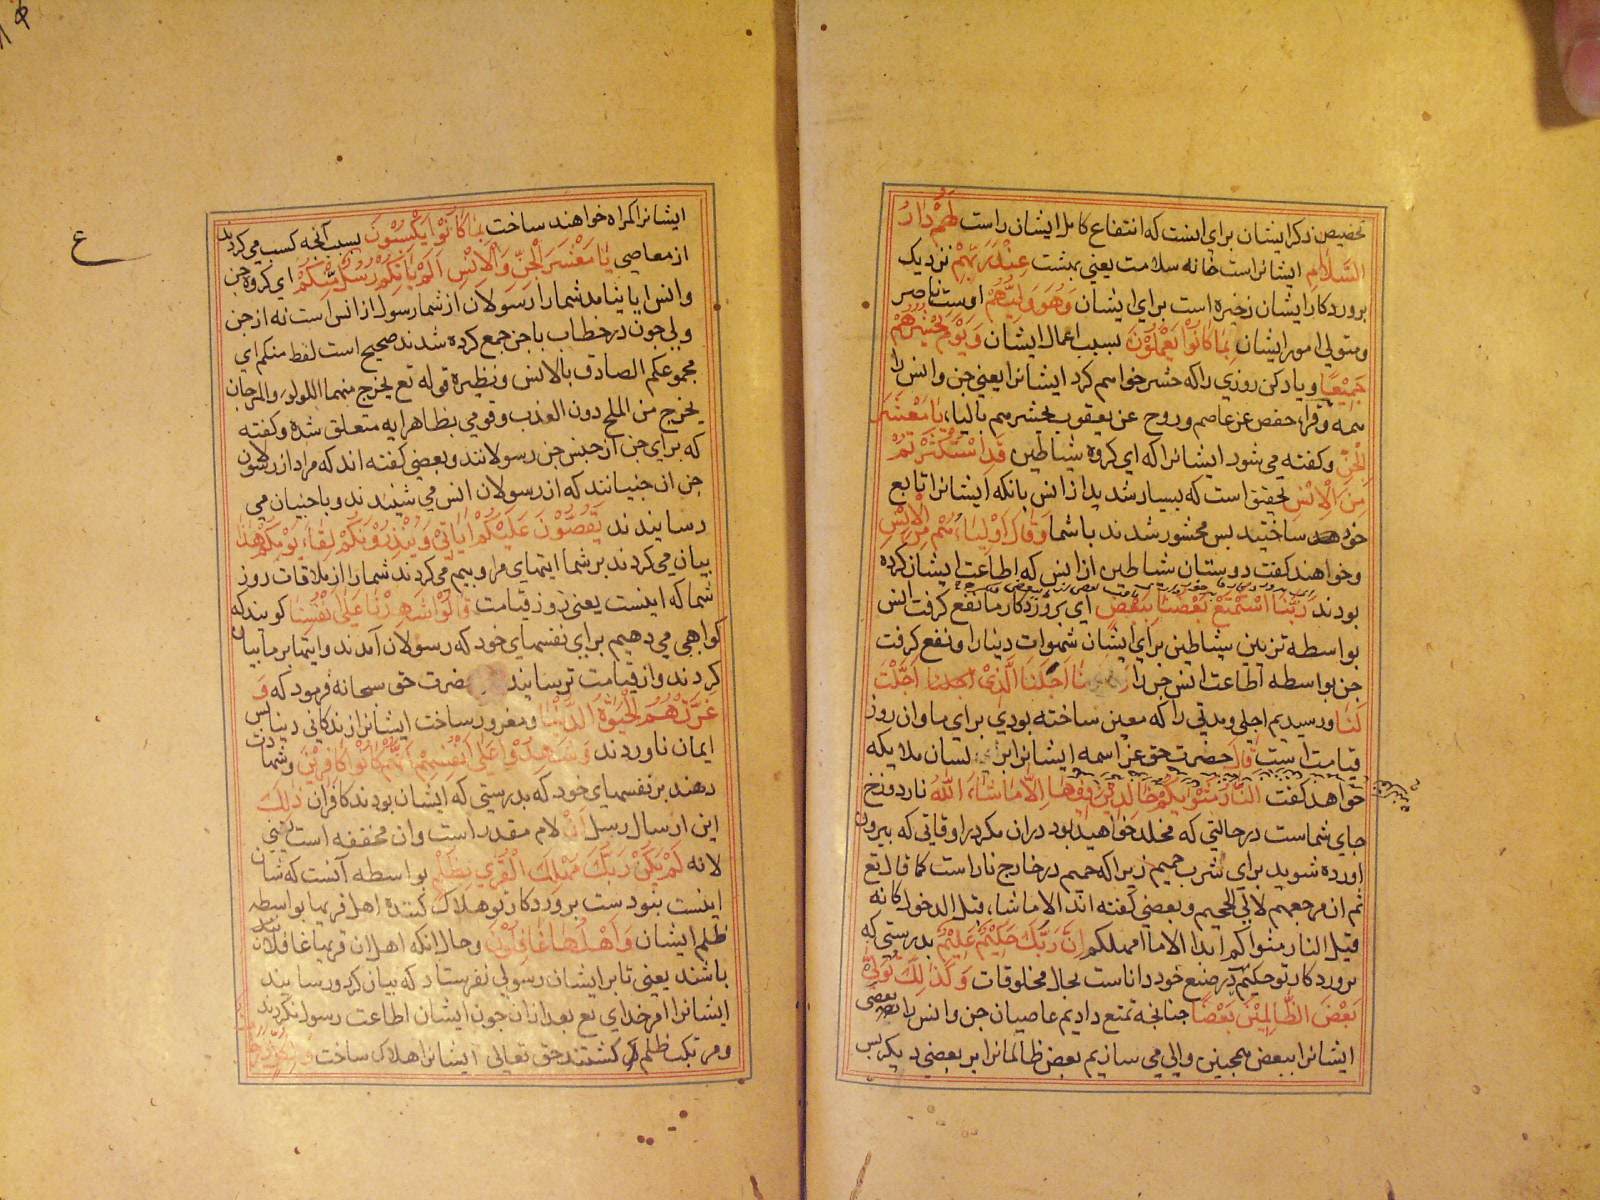 تخصیص ذکر ایشان برای انست که انتفاع کامل ایشان راست لَهُمْ دَارُ
السَّلَامِ ایشانراست خانه سلامت یعنی بهشت عِنْدَ رَبِّهِمْ نزدیک
پروردکار ایشان ذخیره است برای ایشان وَهُوَ وَلِیُّهُمْ اوست ناصر
ومتولی امور ایشان بِمَا کَانُوْا یَعْمَلُوْنَ بسبب اعمال ایشان وَیَوْمَ نَحْشُرُهُمْ
جَمِیْعًا ویاد کن روزی را که حشر خواهیم کرد ایشانرا یعنی جن وانس را
همه وقرا، حفص عن عاصم وروح عن یعقوب یحشرهم بالیا، یَا مَعْشَرَ
الْجِنِّ وکفته می شود ایشانرا که ای کروه شیاطین قَدِ اسْتَکْثَرْتُمْ
مِنَ الْاِنْسِ تحقیق است که بسیار شدید از انس بانکه ایشانرا تابع
خود ساختید پس محشور شدند با شما وَقَالَ اَوْلِیَاۤءُهُمْ مِنَ الْاِنْسِ
وخواهند کفت دوستان شیاطین از انس که اطاعت ایشان کرده
بودند رَبَّنَا اسْتَمْتَعَ بَعْضُنَا بِبَعْضٍ ای پروردکار ما نفع کرفت انس
بواسطه تزیین شیاطین برای ایشان شهوات دنیا را ونفع کرفت
جن بواسطه اطاعت انس جن را اَجَلَنَا الَّذِیْ اَجَّلْتَ
لَنَا ورسیدیم اجلی ومدتی را که معین ساخته بودی برای ما وان روز
قیامت است قَالَ حضرت حق عز اسمه ایشانرا لسان ملایکه
خواهد کفت النَّارُ مَثْوٰیکُمْ خَالِدِیْنَ فِیْهَا اِلَّا مَا شَاۤءَ اللّٰهُ نار دوزخ
جای شماست در حالتی که مخلد خواهید بود دران مکر در اوقاتی که بیرون
اورده شوید برای شرب حمیم زیرا که حمیم در خارج نار است کما قال تع
ثم ان مرجعهم لالی الجحیم وبعضی کفته اند الا ماشا، قبل الدخول کانه
قیل النار مثواکم ابدا الا ما امهلکم اِنَّ رَبَّکَ حَکِیْمٌ عَلِیْمٌ بدرستی که
پروردکار تو حکیم در صنع خود داناست بحال مخلوقات وَکَذٰلِکَ نُوَلِّیْ
بَعْضَ الظَّالِمِیْنَ بَعْضًا جنانجه تمتع دادیم عاصیان جن وانس را بعضی
ایشانرا ببعض همجنین والی می سازیم بعض ظالمانرا بر بعضی دیکر پس
ایشانرا کمراه خواهند ساخت بِمَا کَانُوْا یَکْسِبُوْنَ بسبب آنجه کسب می کردند
از معاصی یَا مَعْشَرَ الْجِنِّ وَالْاِنْسِ اَلَمْ یَاْتِکُمْ رُسُلٌ مِنْکُمْ ای کروه جن
وانس ایا نیامد شما را رسولان از شما رسول از انس است نه از جن
ولی جون در خطاب با جن جمع کرده شدند صحیح است لفظ منکم ای
مجموعکم الصادق بالانس ونظیره قوله تع یخرج منهما اللولو والمرجان
یخرج من الملح دون العذب وقومی بظاهر ایه متعلق شده وکفته
که برای جن از جنس جن رسولانند وبعضی کفته اند که مراد از رسولان
جن ان جنیانند که از رسولان انس می شنیدند وبا جنیان می
رسانیدند یَقُصُّوْنَ عَلَیْکُمْ اٰیَاتِیْ وَیُنْذِرُوْنَکُمْ لِقَاۤءَ یَوْمِکُمْ هٰذَا
بیان می کردند بر شما ایتهای مرا وبیم می کردند شما را از ملاقات روز
شما که اینست یعنی روز قیامت قَالُوْا شَهِدْنَا عَلٰی اَنْفُسِنَا کویند که
کواهی می دهیم برای نفسهای خود که رسولان آمدند وایتها بر ما بیان
کردند واز قیامت ترسانیدند حضرت حق سبحانه فرمود که وَ
غَرَّتْهُمُ الْحَیٰوةُ الدُّنْیَا ومغرور ساخت ایشانرا زندکانی دنیا پس
ایمان ناوردند وَشَهِدُوْا عَلٰی اَنْفُسِهِمْ اَنَّهُمْ کَانُوْا کَافِرِیْنَ وشهادت
دهند بر نفسهای خود که بدرستی که ایشان بودند کافران ذٰلِکَ
این ارسال رسل اَنْ لام مقدر است وان مخففه است یعنی
لانه لَمْ یَکُنْ رَبُّکَ مُهْلِکَ الْقُرٰی بِظُلْمٍ بواسطه آنست که شان
اینست بنودست پروردکار تو هلاک کننده اهل قریها بواسطه
ظلم ایشان وَاَهْلُهَا غَافِلُوْنَ وحال انکه اهل ان قریها غافلان
باشند یعنی تا بر ایشان رسولی نفرستاد که بیان کرد ورسانید
ایشانرا امر خدای تع بعد ازان جون ایشان اطاعت رسول نکردند
ومرتکب ظلم کشتند حق تعالی ایشانرا هلاک ساخت
ع